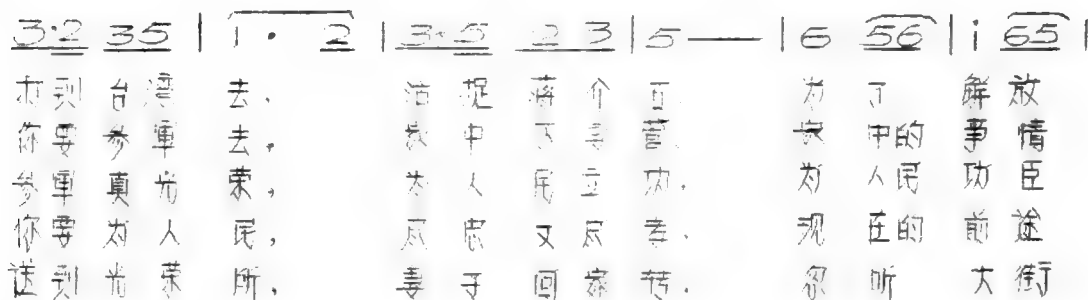 3·2 35 | 1· 2 | 3·5 2 3 | 5 — | 6 56 | i 65 |
打到台湾 去、 活捉蒋介石. 为了 解放
你要参軍 去, 家中 营. 家中的 事情
参軍真光 荣, 为人民立功. 为人民 功臣
你要为人 民, 尽忠又尽孝. 现在的 前途
送到光荣 所, 妻子回家转. 忽听 大街